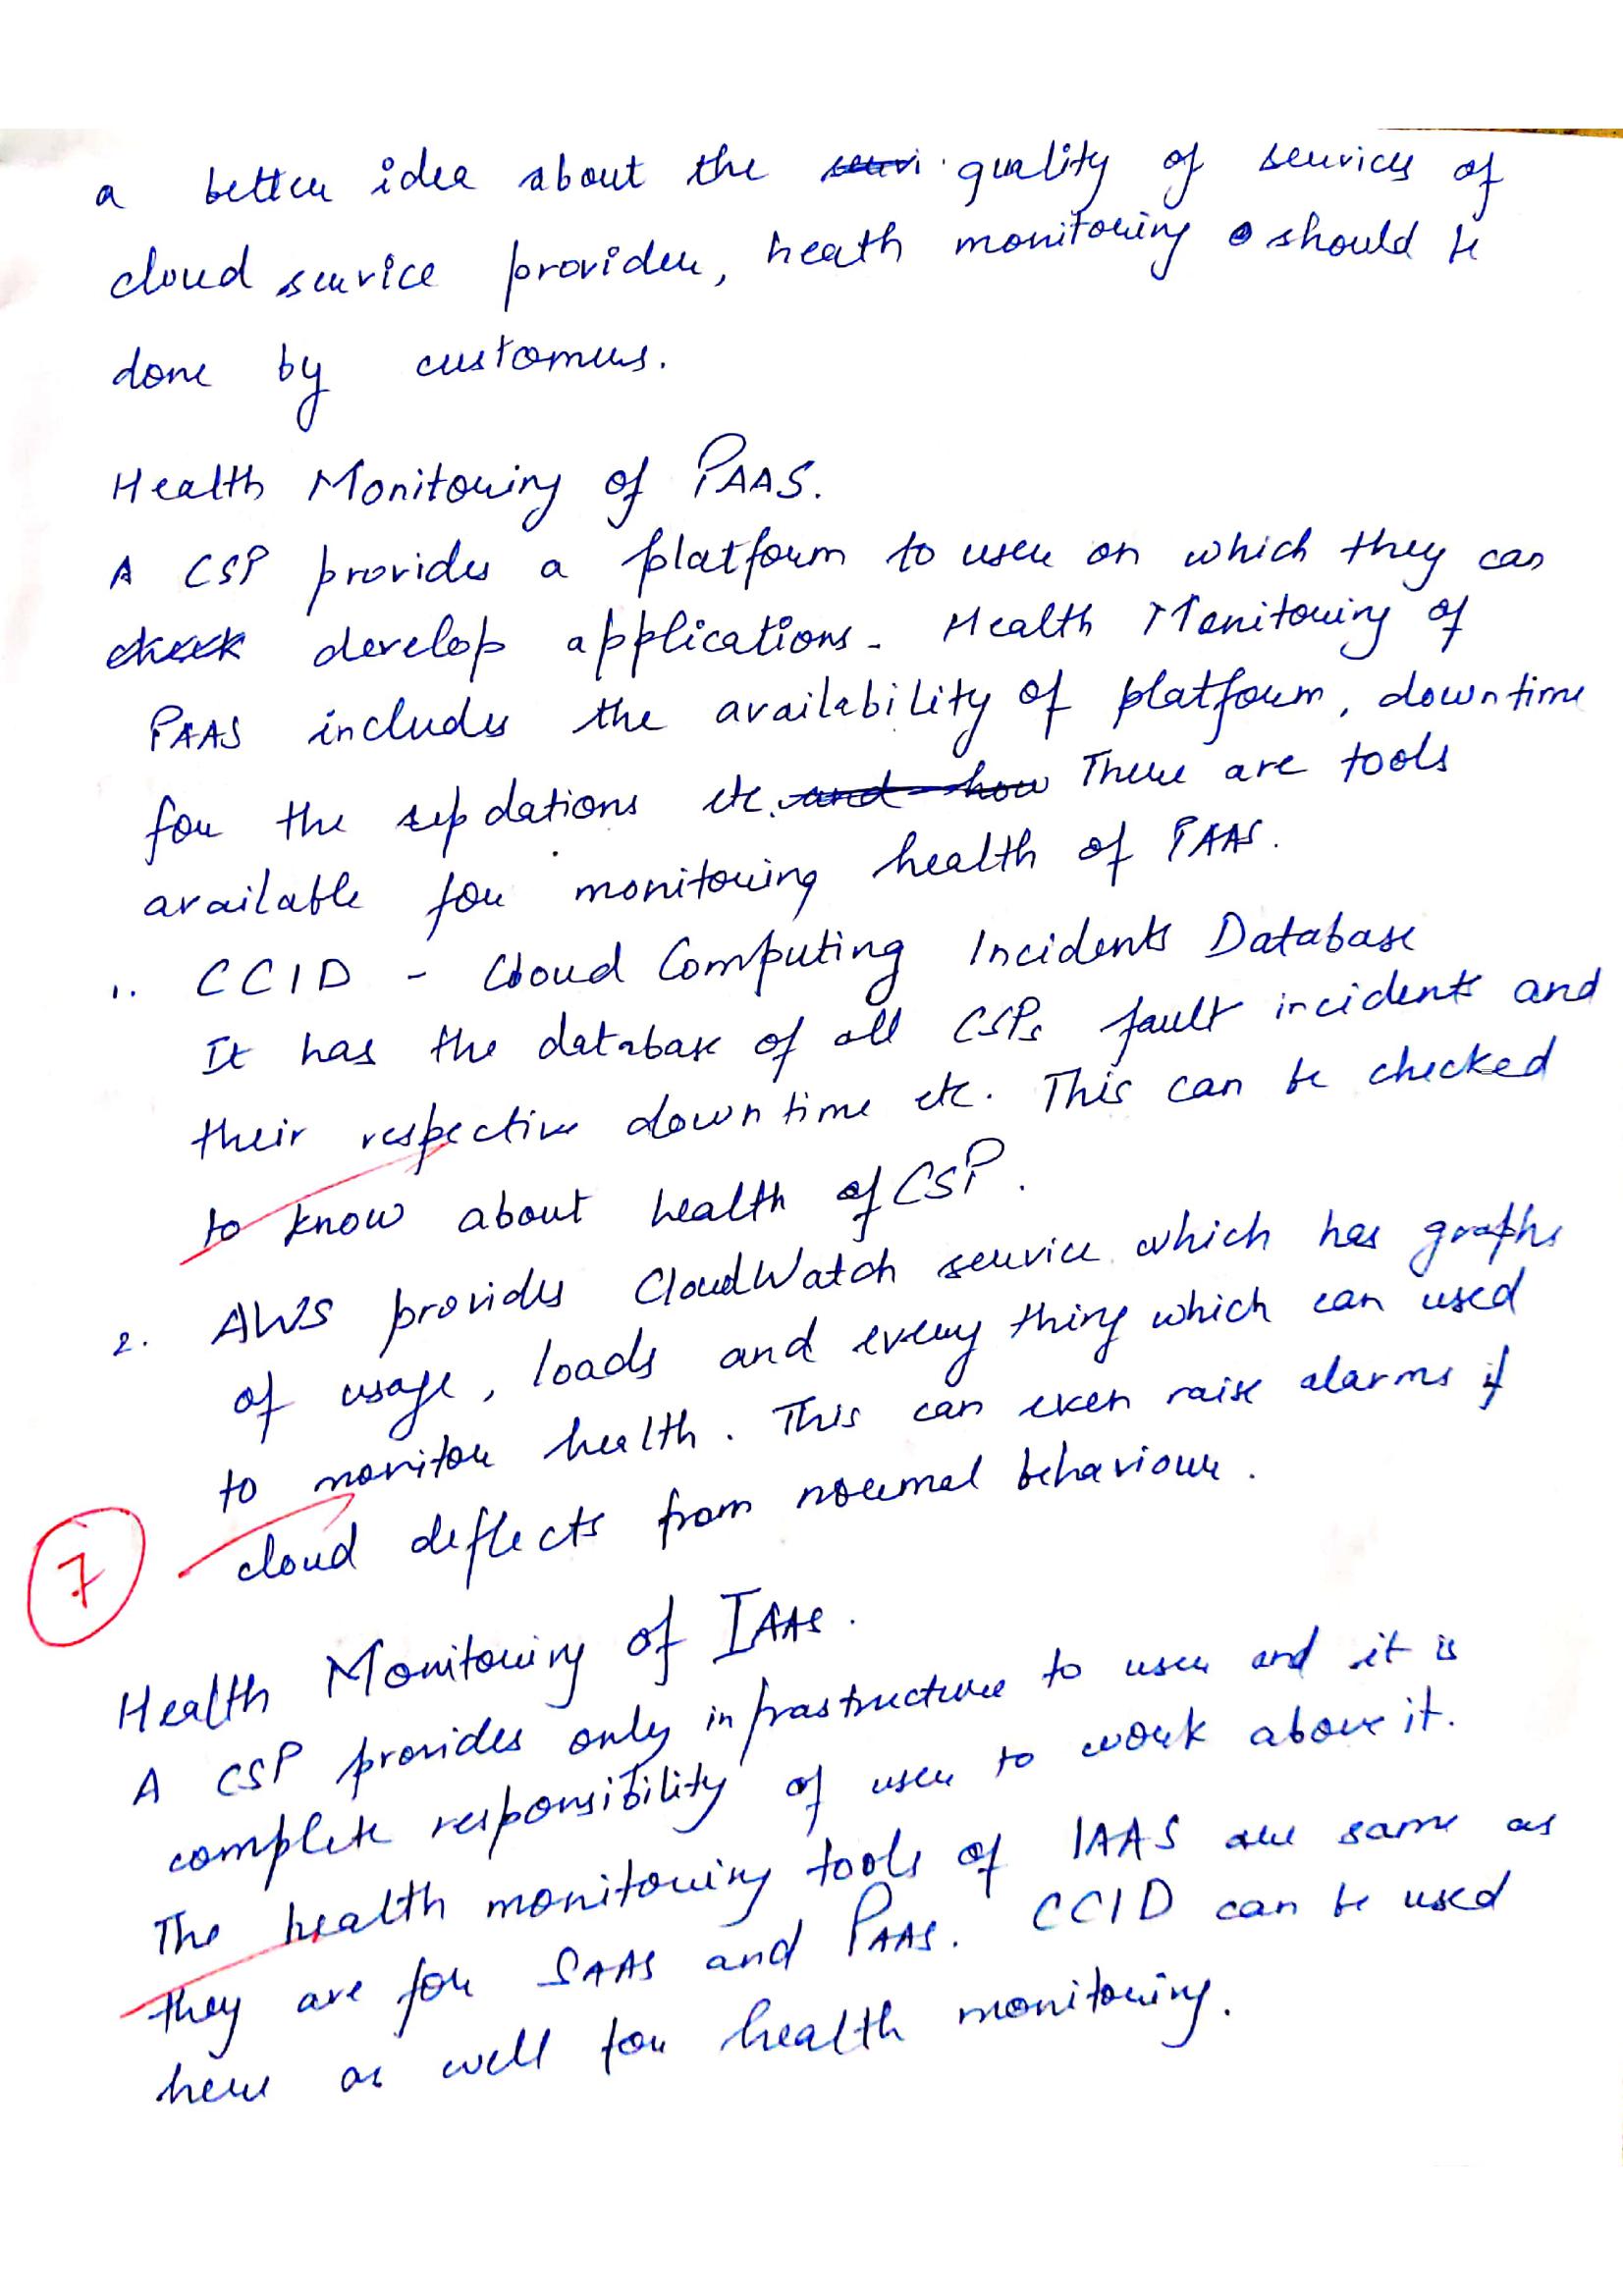 a better idea about the quality of services of
cloud service provider, heath monitoring should be
done by customers.
Health Monitoring of PAAS.
A CSP provides a platform to user on which they can
develop applications. Health Monitoring of
PAAS includes the availability of platform, downtime
for the updations etc. There are tools
available for monitoring health of PAAS.
1. CCID - Cloud Computing Incidents Database
It has the database of all CSPs fault incidents and
their respective downtime etc. This can be checked
to know about health of CSP.
2. AWS provides CloudWatch service which has graphs
of usage, loads and every thing which can used
to monitor health. This can even raise alarms if
cloud deflects from normal behaviour.
7
Health Monitoring of IAAS.
A CSP provides only infrastructure to user and it is
complete responsibility of user to work above it.
The health monitoring tools of IAAS are same as
they are for SAAS and PAAS. CCID can be used
here as well for health monitoring.